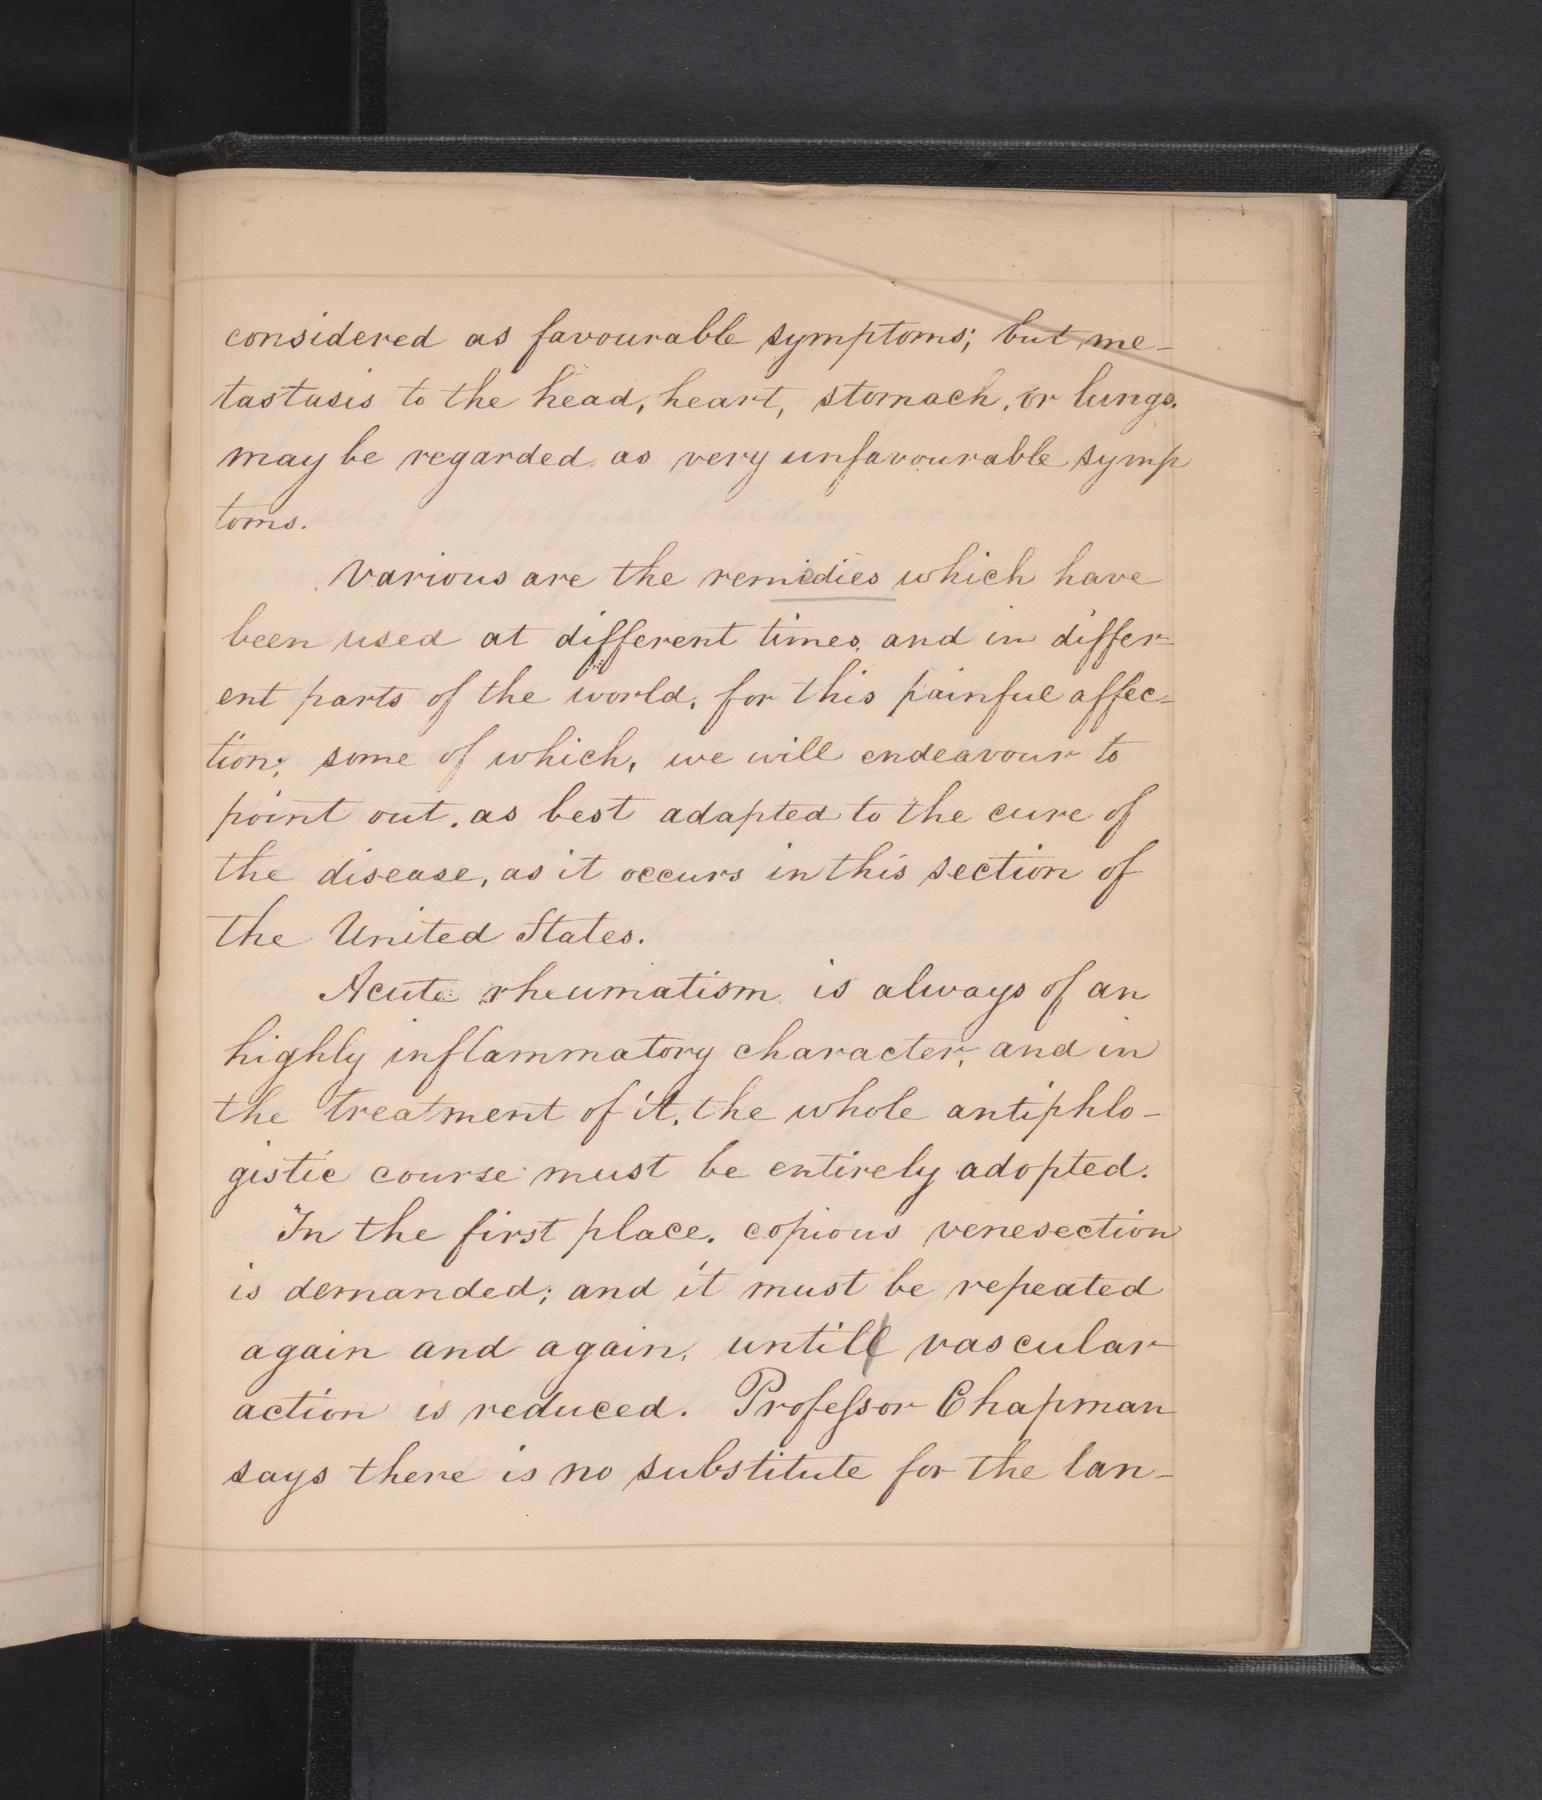 considered as favourable symptoms; but me-
tastasis to the head, heart, stomach, or lungs.
may be regarded as very unfavourable symp
toms.
Various are the remidies which have
been used at different times, and in differ-
ent parts of the world, for this painful affec-
tion; some of which, we will endeavour to
point out, as best adapted to the cure of
the disease, as it occurs in this section of
the United States.
Acute rheumatism is always of an
highly inflammatory character, and in
the treatment of it, the whole antiphlo-
gistic course must be entirely adopted.
In the first place, copious venesection
is demanded; and it must be repeated
again and again, untill vascular
action is reduced. Professor Chapman
says there is no substitute for the lan-